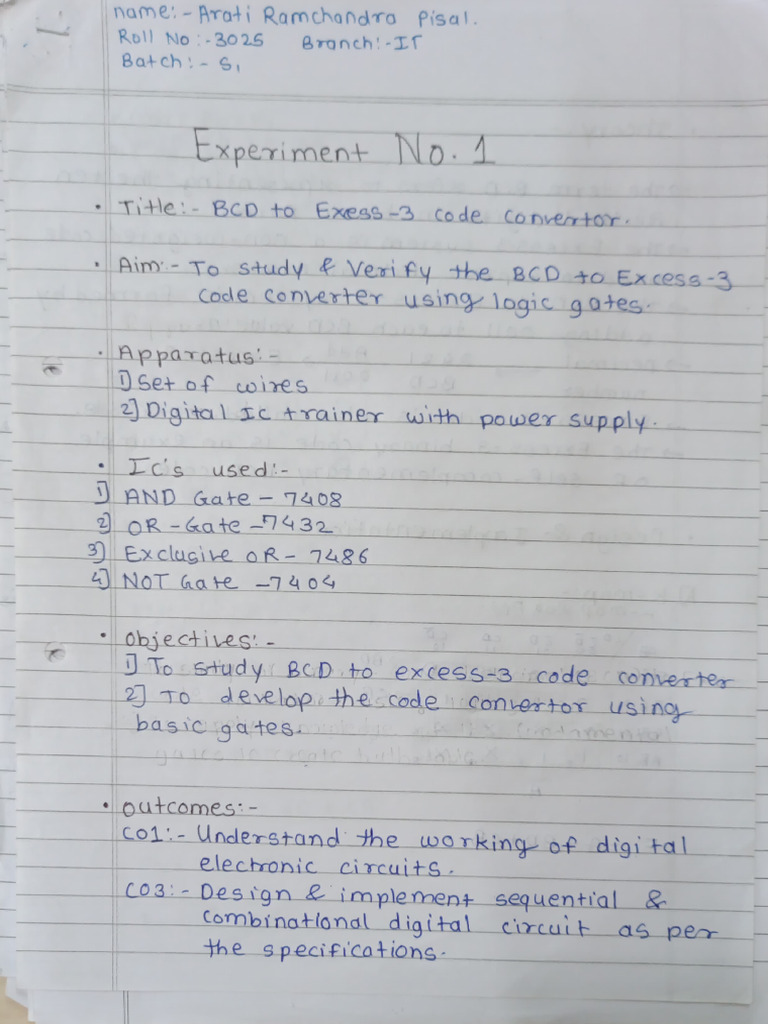 name:- Arati Ramchandra Pisal.
Roll No:-3025 Branch:-IT
Batch:- S1
Experiment No. 1
• Title:- BCD to Exess-3 code convertor.
• Aim:- To study & Verify the BCD to Excess-3
code converter using logic gates.
• Apparatus:-
1] Set of wires
2] Digital Ic trainer with power supply.
• Ic's used:-
1] AND Gate - 7408
2] OR-Gate -7432
3] Exclusive OR- 7486
4] NOT Gate -7404
• Objectives:-
1] To study BCD to excess-3 code converter
2] To develop the code convertor using
basic gates.
• Outcomes:-
CO1:- Understand the working of digital
electronic circuits.
CO3:- Design & implement sequential &
combinational digital circuit as per
the specifications.